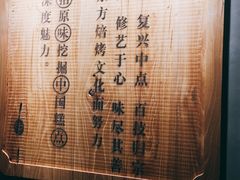 复兴中点 百技归
修艺于心 味尽其善
东方焙烤文化而努力
原味挖掘中国糕点
深度魅力。